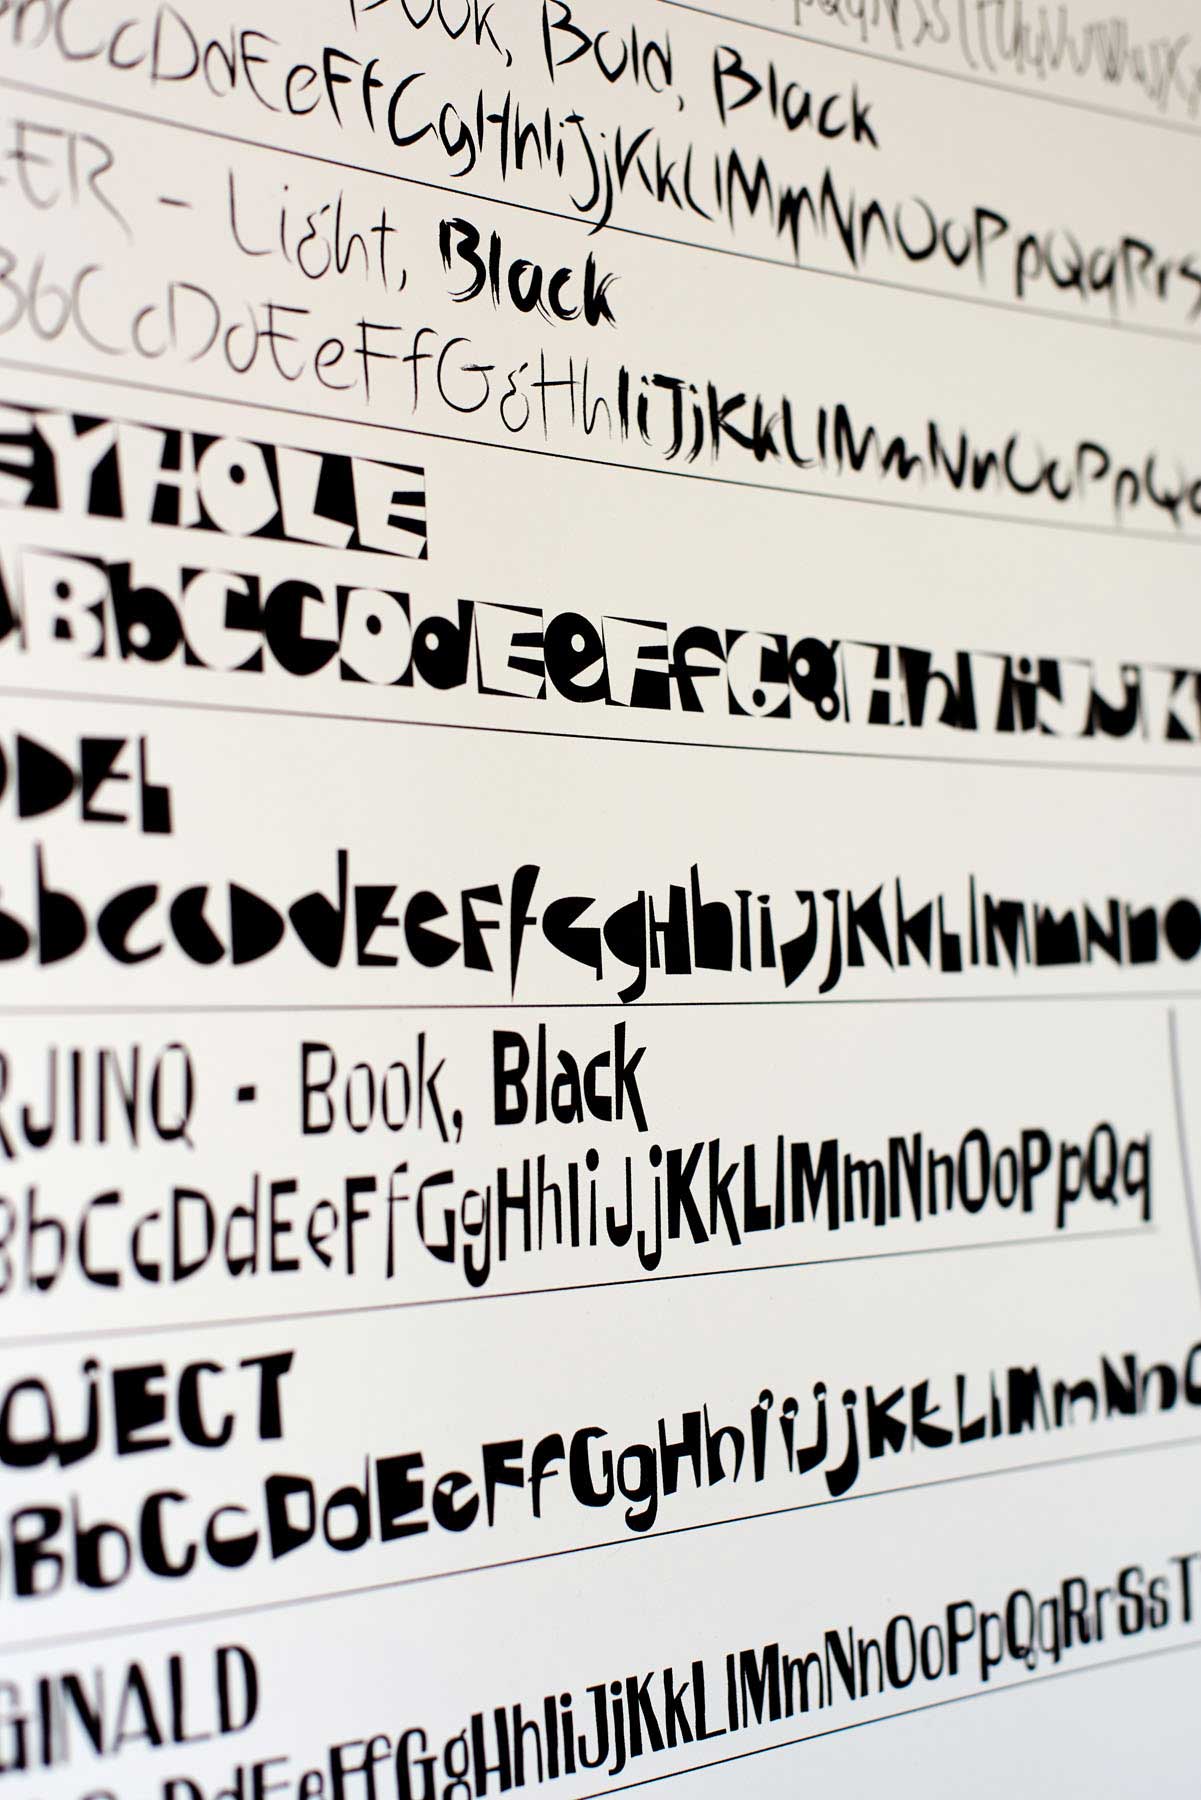 Book, Bold, Black
CcDdEeFfGgHhIiJjKkLlMmNnOoPpQqRrS
ER - Light, Black
BbCcDdEeFfGgHhIiJjKkLlMmNnOoPpQq
EYHOLE
BbCcDdEeFfGgHhIiJjK
ODEL
bCcDdEeFfGgHhIiJjKkLlMmNnO
RJINQ - Book, Black
BbCcDdEeFfGgHhIiJjKkLlMmNnOoPpQq
OJECT
BbCcDdEeFfGgHhIiJjKkLlMmNnO
GINALD
DdEeFfGgHhIiJjKkLlMmNnOoPpQqRrSsT